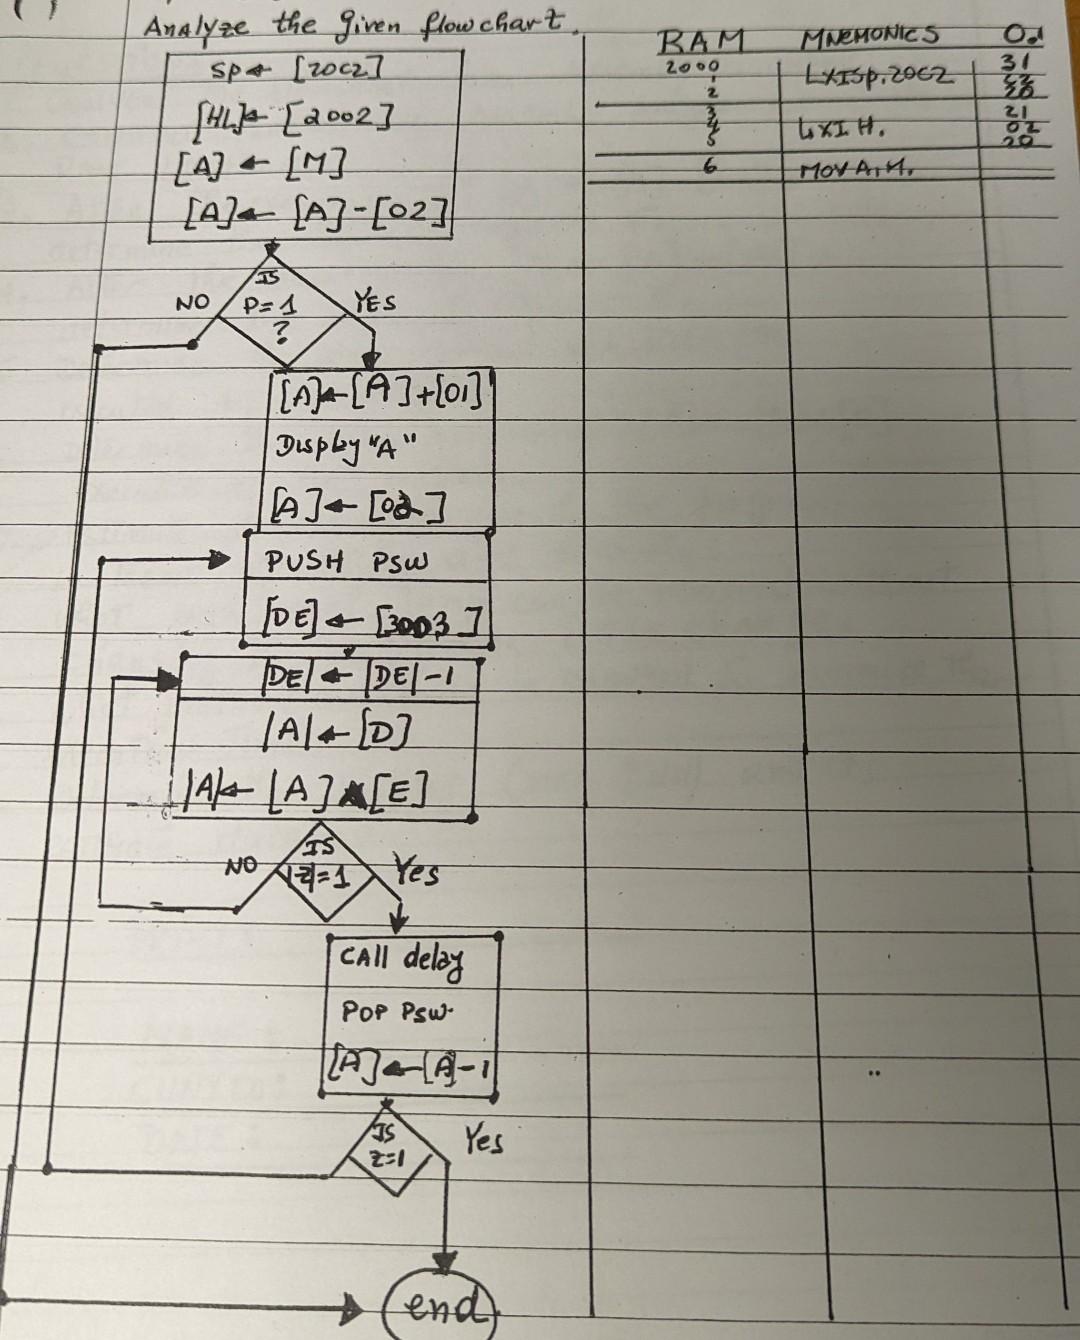 Analyze the given flowchart.
SP ← [20C2]
[HL] ← [2002]
[A] ← [M]
[A] ← [A] - [02]
IS
P=1
?
NO
YES
[A] ← [A] + [01]
Display "A"
[A] ← [02]
PUSH PSW
[DE] ← [3003]
|DE| ← |DE| - 1
|A| ← [D]
|A| ← [A] [E]
IS
|Z|=1
NO
Yes
CAll delay
POP PSW.
[A] ← [A] - 1
IS
Z=1
Yes
end
RAM MNEMONICS
2000 LXISP, 20C2 31
1
2 20
3 21
4 LXI H. 02
5 20
6 MOV A, M.